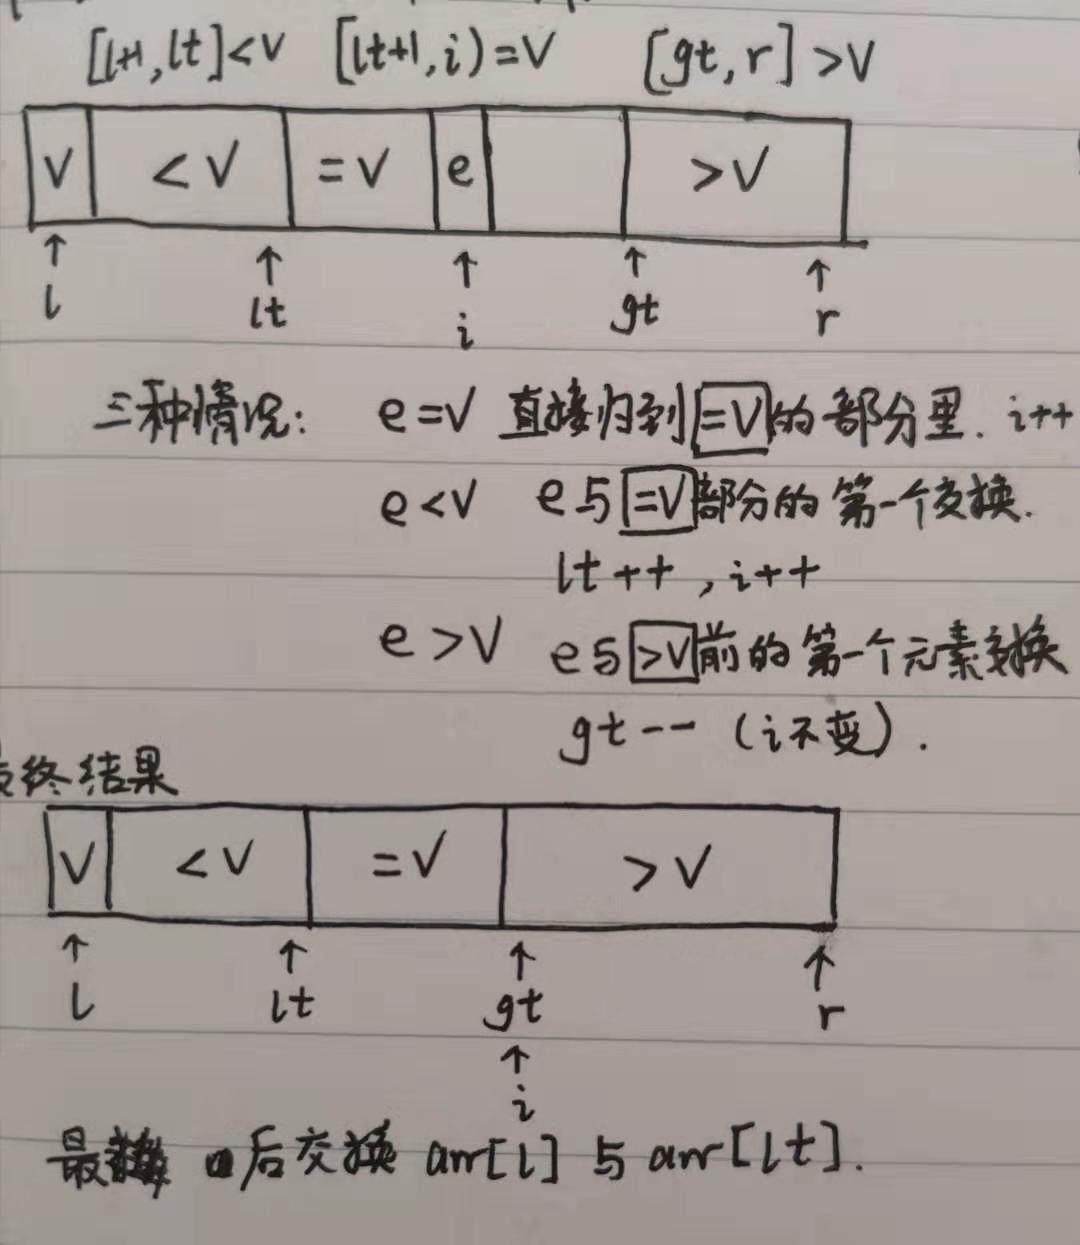 [l+1,lt]<V [lt+1,i)=V [gt,r]>V
V <V =V e >V
l lt i gt r
三种情况: e=V 直接归到=V的部分里. i++
e<V e与=V部分的第一个交换.
lt++,i++
e>V e与>V前的第一个元素交换
gt-- (i不变).
最终结果
V <V =V >V
l lt gt r
i
最后交换 arr[l] 与 arr[lt].